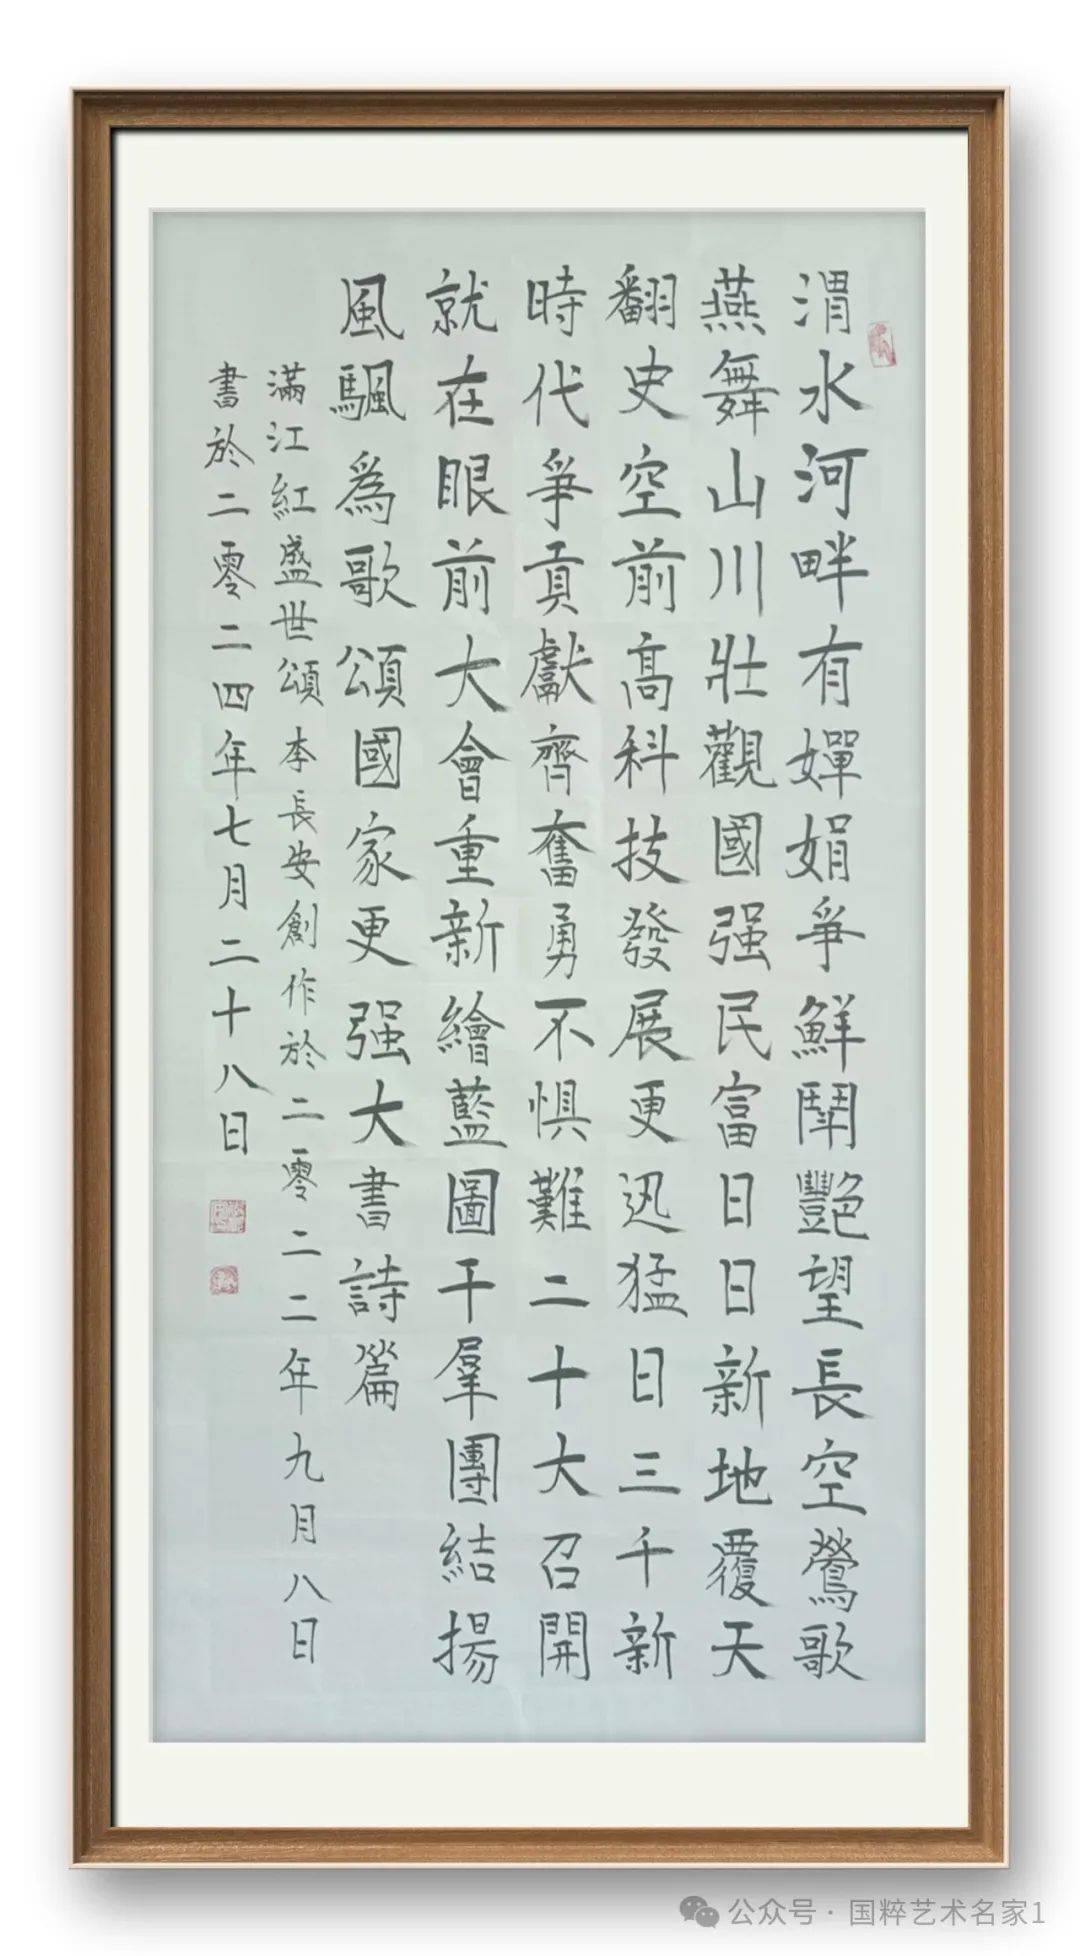 渭水河畔有嬋娟爭鮮鬥艷望長空鶯歌
燕舞山川壯觀國强民富日日新地覆天
翻史空前高科技發展更迅猛日三千新
時代爭貢獻齊奮勇不惧難二十大召開
就在眼前大會重新繪藍圖干羣團結揚
風颿爲歌頌國家更强大書詩篇
滿江紅盛世頌李長安創作於二零二二年九月八日
書於二零二四年七月二十八日
公众号·国粹艺术名家1